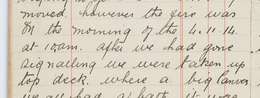 moved. however the giro was
on the morning of the 4.11.14.
at 10am. after we had gone
signalling we were taken up
top deck. where a big canvas
we all had a bath it was